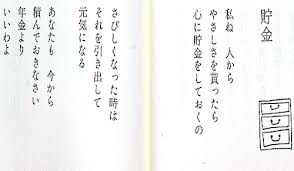 貯金
私ね 人から
やさしさを貰ったら
心に貯金をしておくの
さびしくなった時は
それを引き出して
元気になる
あなたも 今から
積んでおきなさい
年金より
いいわよ